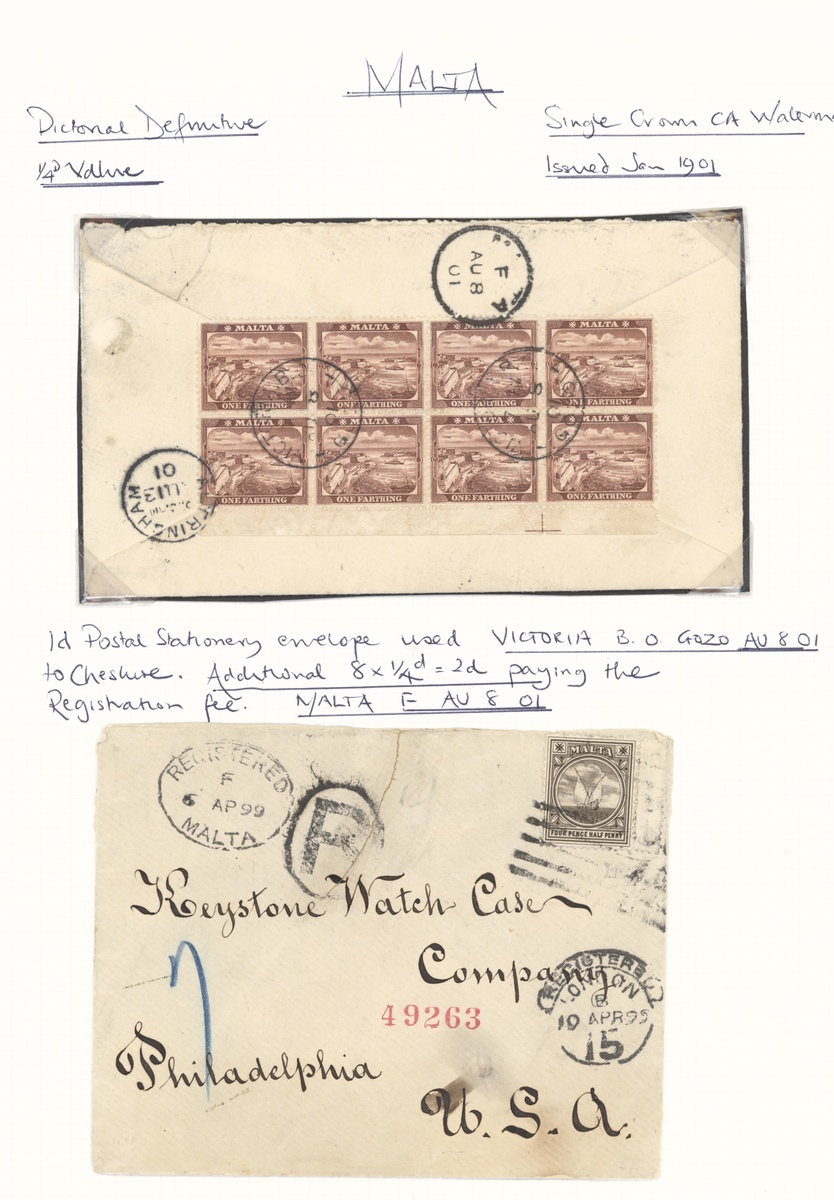 MALTA
Pictorial Definitive
Single Crown CA Waterm
1/4D Value
Issued Jan 1901
F
AU 8
01
MALTA
MALTA
MALTA
MALTA
ONE FARTHING
ONE FARTHING
ONE FARTHING
ONE FARTHING
MALTA
MALTA
MALTA
MALTA
ONE FARTHING
ONE FARTHING
ONE FARTHING
ONE FARTHING
01
1d Postal Stationery envelope used VICTORIA B.O. GOZO AU 8 01
to Cheshire. Additional 8 x 1/4d = 2d paying the
Registration fee. MALTA F AU 8 01
REGISTERED
F
6 AP 99
MALTA
R
MALTA
FOUR PENCE HALF PENNY
Keystone Watch Case
Company
REGISTERED
LONDON
10 APR 99
15
49263
Philadelphia
U. S. A.